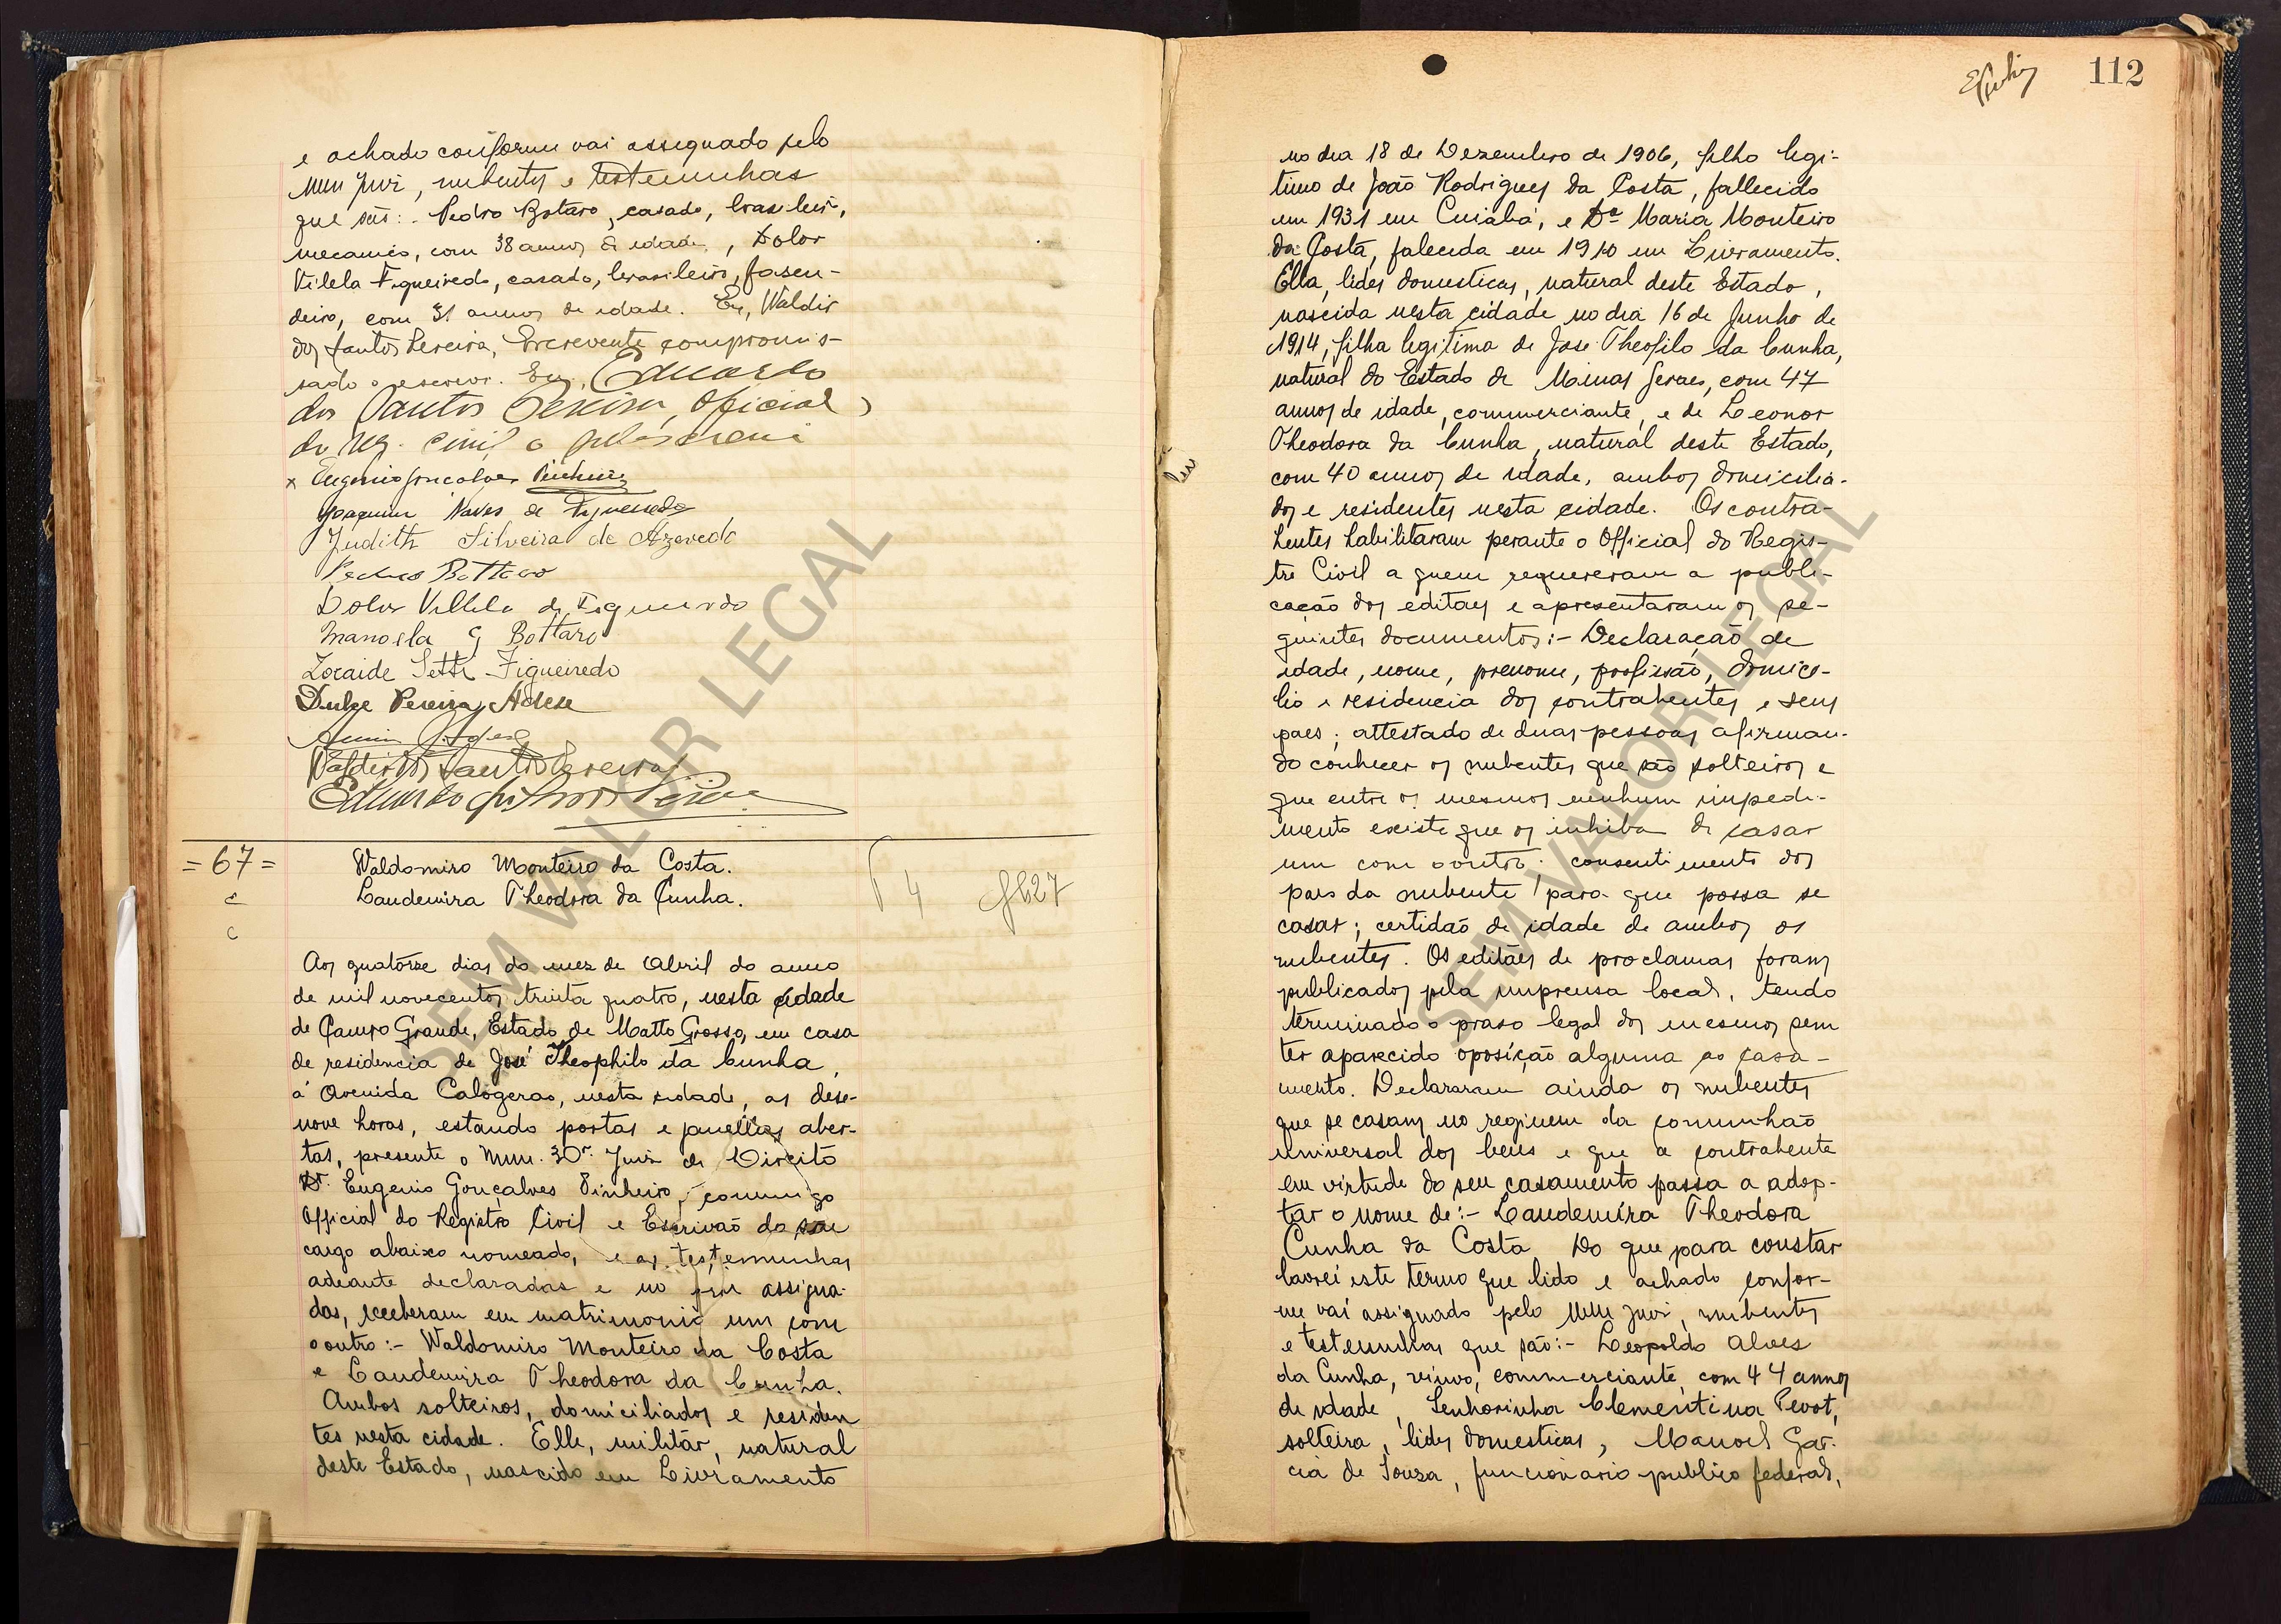 e achado conforme vai assignado pelo
Mm Juiz, nubentes e testemunhas
que são: - Pedro Botaro, casado, brasileiro,
mecanico, com 38 annos de idade, Dolor
Vilela Figueiredo, casado, brasileiro, fasen-
deiro, com 31 annos de idade. Eu, Waldir
dos Santos Pereira, Escrevente compromis-
sado o escrevi. Eu, Eduardo
dos Santos Pereira, Official
do reg. civil o subscrevi
x Eugenio Goncalves Pinheiro
Joaquim Naves de Figueiredo
Judith Silveira de Azevedo
Pedro Bottaro
Dolor Villela de Figueiredo
Manoela G Bottaro
Zoraide Figueiredo
Dulce Pereira Adese
Waldir dos Santos Pereira
Eduardo dos Santos Pereira
= 67 =
Waldomiro Monteiro da Costa.
Laudemira Theodora da Cunha.
c
c
4 fl 27
Aos quatôrze dias do mez de Abril do anno
de mil novecentos trinta quatro, nesta cidade
de Campo Grande, Estado de Matto Grosso, em casa
de residencia de José Theophilo da Cunha,
á Avenida Calogeras, nesta cidade, as dese-
nove horas, estando portas e janellas aber-
tas, presente o Mm. Juiz de Direito
Dr. Eugenio Gonçalves Pinheiro, commigo
Official do Registro Civil e Escrivão do seu
cargo abaixo nomeado, e as testemunhas
adeante declaradas e no fim assigna-
das, receberam em matrimonio um com
o outro :- Waldomiro Monteiro da Costa
e Laudemira Theodora da Cunha.
Ambos solteiros, domiciliados e residen
tes nesta cidade. Elle, militar, natural
deste Estado, nascido em Livramento
112
no dia 18 de Dezembro de 1906, filho legi-
timo de João Rodrigues da Costa, fallecido
em 1931 em Cuiabá, e Da Maria Monteiro
da Costa, falecida em 1910 em Livramento.
Ella, lides domesticas, natural deste Estado,
nascida nesta cidade no dia 16 de Junho de
1914, filha legitima de José Theofilo da Cunha,
natural do Estado de Minas Geraes, com 47
annos de idade, commerciante, e de Leonor
Theodora da Cunha, natural deste Estado,
com 40 annos de idade, ambos domicilia-
dos e residentes nesta cidade. Os contra-
hentes habilitaram perante o Official do Regis-
tro Civil a quem requereram a publi-
cação dos editaes e apresentaram os se-
guintes documentos :- Declaração de
idade, nome, prenome, profissão, domici-
lio e residencia dos contrahentes e seus
paes; attestado de duas pessoas afirman-
do conhecer os nubentes que são solteiros e
que entre os mesmos nenhum impedi-
mento existe que os inhiba de casar
um com o outro; consentimento dos
paes da nubente para que possa se
casar; certidão de idade de ambos os
nubentes. Os editáes de proclamas foram
publicados pela imprensa local, tendo
terminado o praso legal dos mesmos sem
ter aparecido oposição alguma ao casa-
mento. Declararam ainda os nubentes
que se casam no regimem da comunhão
universal dos bens e que a contrahente
em virtude do seu casamento passa a adop-
tar o nome de :- Laudemira Theodora
Cunha da Costa. Do que para constar
lavrei este termo que lido e achado confor-
me vai assignado pelo Mm Juiz, nubentes
e testemunhas que são :- Leopoldo Alves
da Cunha, viuvo, commerciante, com 44 annos
de idade, Senhorinha Clementina Pevot,
solteira, lides domesticas, Manoel Gar-
cia de Souza, funcionario publico federal,
SEM VALOR LEGAL
SEM VALOR LEGAL